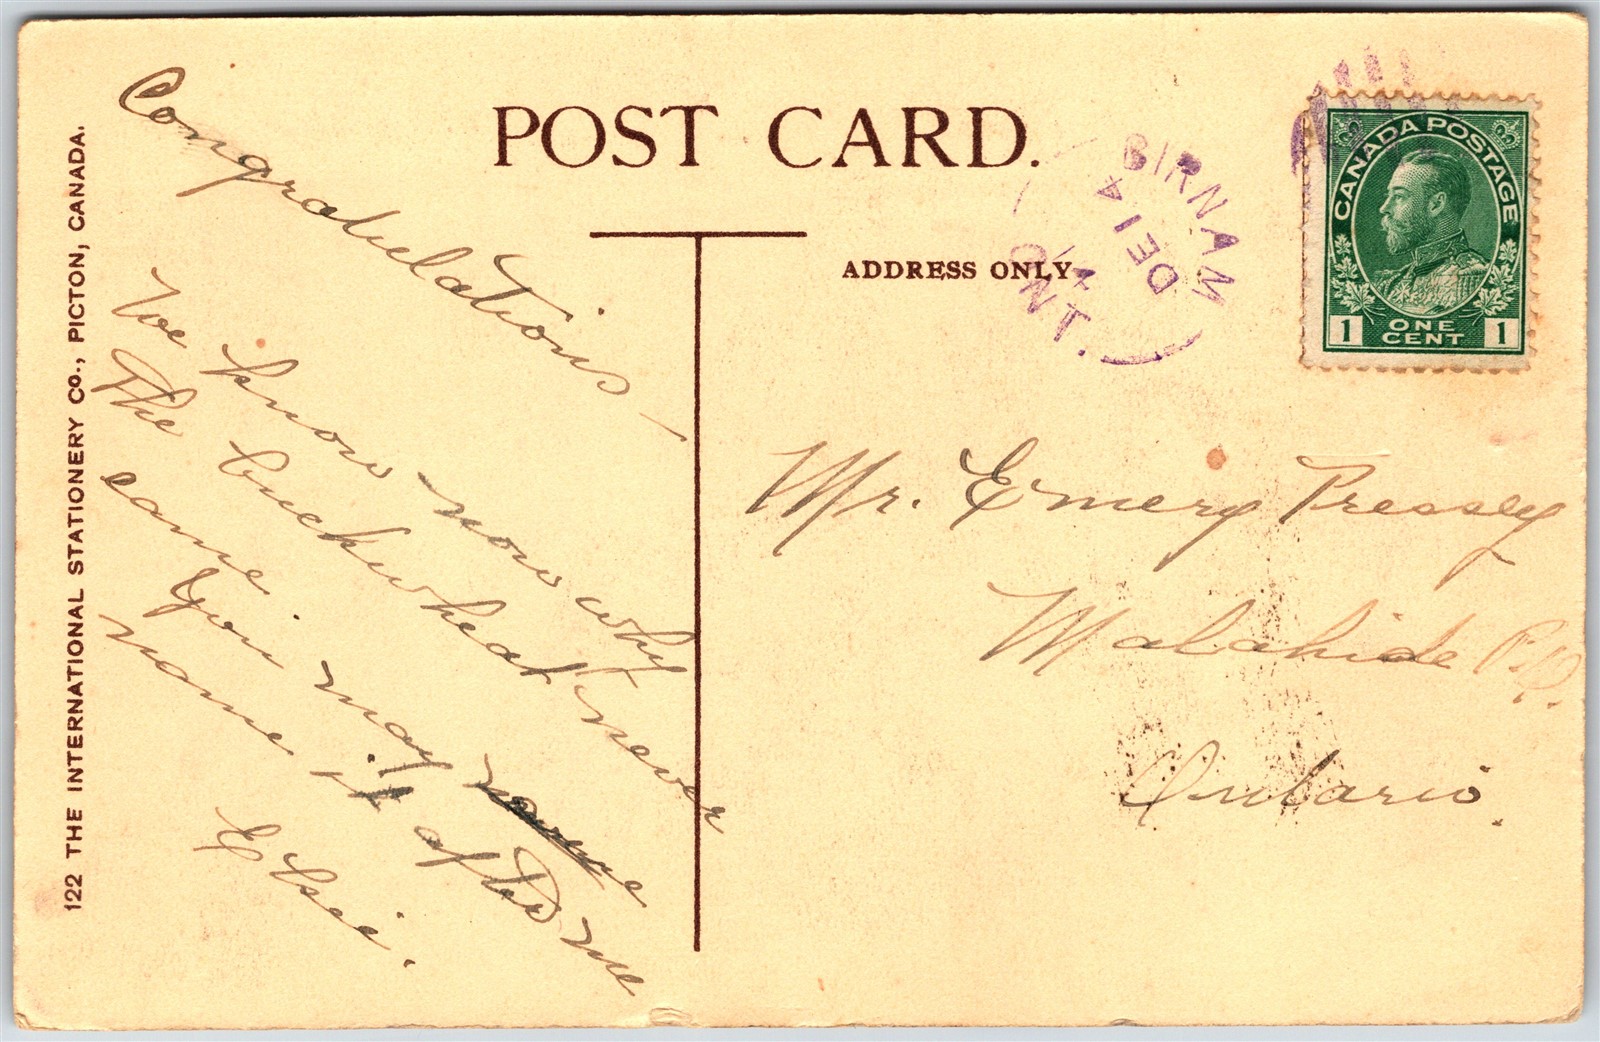 POST CARD.
ADDRESS ONLY
BIRNAM
DE 1
14
ONT.
CANADA POSTAGE
1 ONE CENT 1
122 THE INTERNATIONAL STATIONERY CO., PICTON, CANADA.
Congratulations –
We know now why
the buckwheat never
came.
You may name
name it after me
Elsei.
Mr. Emery Pressey
Malahide P.O.
Ontario.